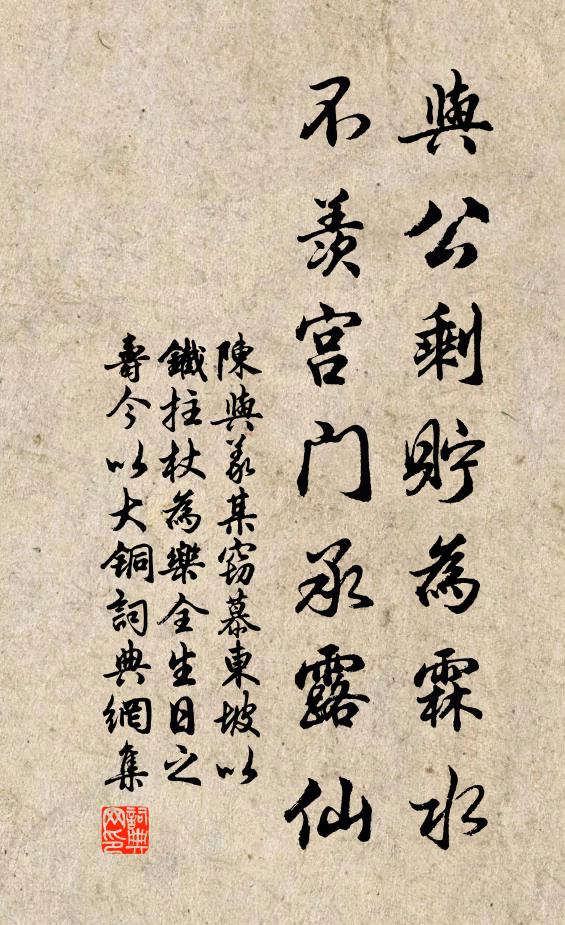 與公剩貯為霖水
不羨宮门承露仙
陳與義某窃慕東坡以
鐵拄杖為樂全生日之
壽今以大铜詞典網集
詞典
网印